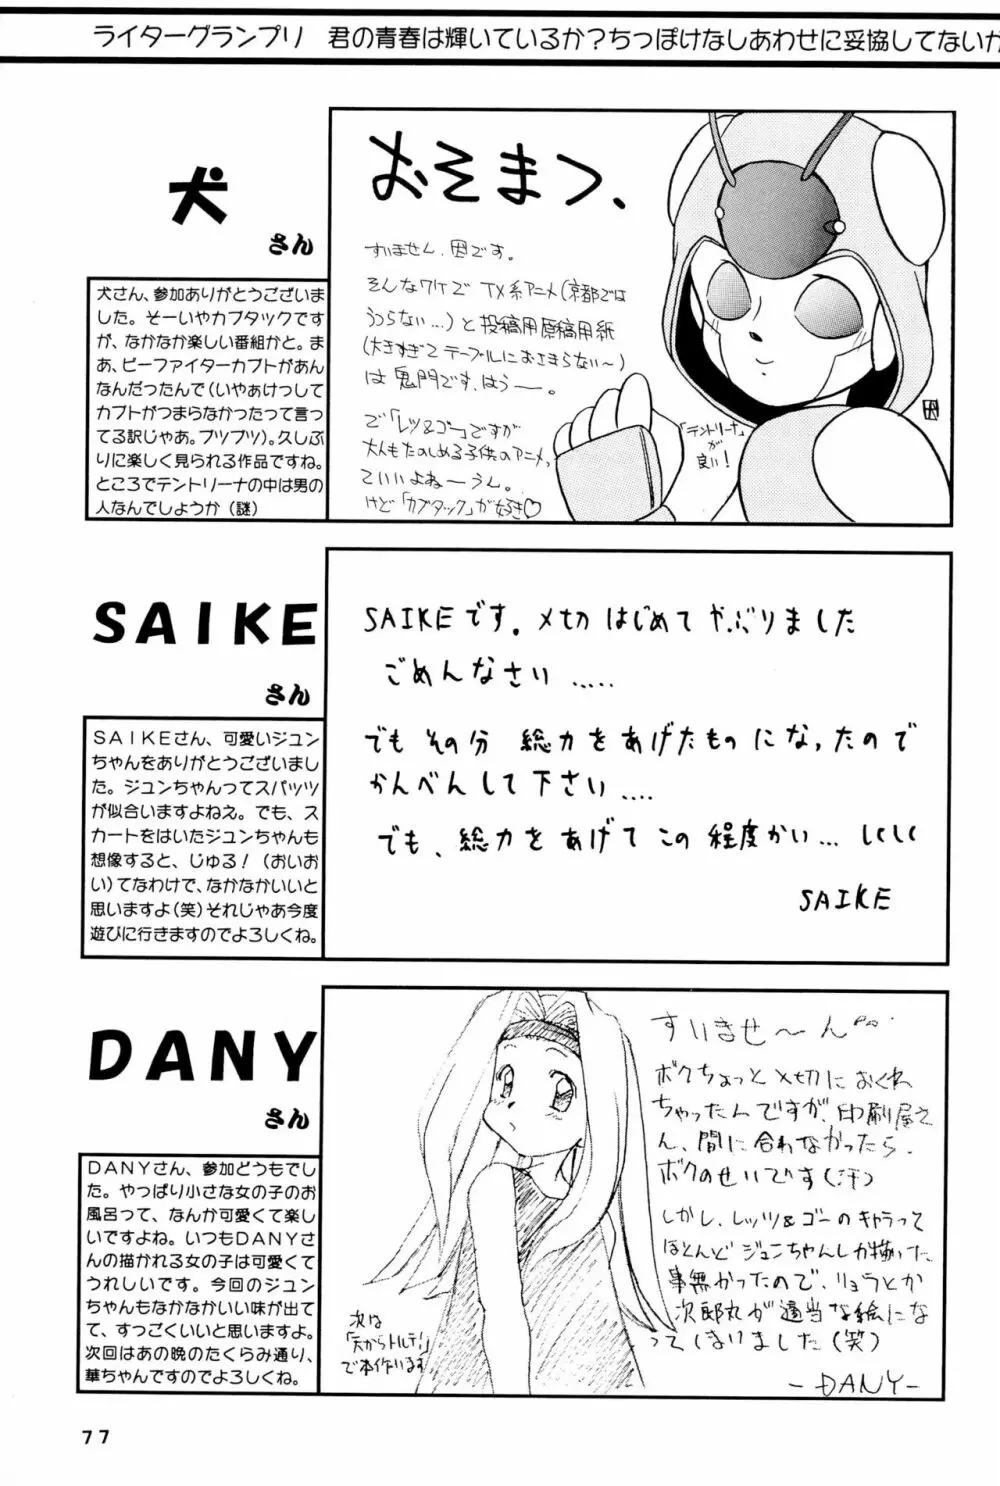 ライターグランプリ　君の青春は輝いているか？ちっぽけなしあわせに妥協してないか
犬
さん
犬さん、参加ありがとうございま
した。そーいやカブタックです
が、なかなか楽しい番組かと。ま
あ、ビーファイターカブトがあん
なんだったんで（いやぁけっして
カブトがつまらなかったって言っ
てる訳じゃあ。ブツブツ）。久しぶ
りに楽しく見られる作品ですね。
ところでテントリーナの中は男の
人なんでしょうか（謎）
おそまつ、
すいません、囚です。
そんなワケで TX系アニメ（京都では
うつらない…）と投稿用原稿用紙
（大きすぎてテーブルにおさまらない～）
は鬼門です、はぅー。
で「レツ&ゴー」ですが
大人もたのしめる子供のアニメっ
ていいよねーうん。
けど「カブタック」が好き♡
「テントリーナ」
が
良い！
SAIKE
さん
ＳＡＩＫＥさん、可愛いジュン
ちゃんをありがとうございまし
た。ジュンちゃんってスパッツ
が似合いますよねえ。でも、ス
カートをはいたジュンちゃんも
想像すると、じゅる！（おいお
い）てなわけで、なかなかいいと
思いますよ（笑）それじゃあ今度
遊びに行きますのでよろしくね。
SAIKEです。〆切はじめてやぶりました
ごめんなさい……
でもその分 総力をあげたものになったので
かんべんして下さい…．
でも、総力をあげてこの程度かい… しくしく
SAIKE
DANY
さん
ＤＡＮＹさん、参加どうもでし
た。やっぱり小さな女の子のお
風呂って、なんか可愛くて楽し
いですよね。いつもＤＡＮＹさ
んの描かれる女の子は可愛くて
うれしいです。今回のジュン
ちゃんもなかなかいい味が出て
て、すっごくいいと思いますよ。
次回はあの晩のたくらみ通り、
華ちゃんですのでよろしくね。
すいませ～ん
ボクちょっと〆切におくれ
ちゃったんですが、印刷屋さ
ん、間に合わなかったら
ボクのせいです（汗）
しかし、レッツ&ゴーのキャラって
ほとんどジュンちゃんしか描いた
事無かったので、リョウとか
次郎丸が適当な絵になっ
てしまいました（笑）
－DANY－
次は
「天からトルテ！」
で本作います
77